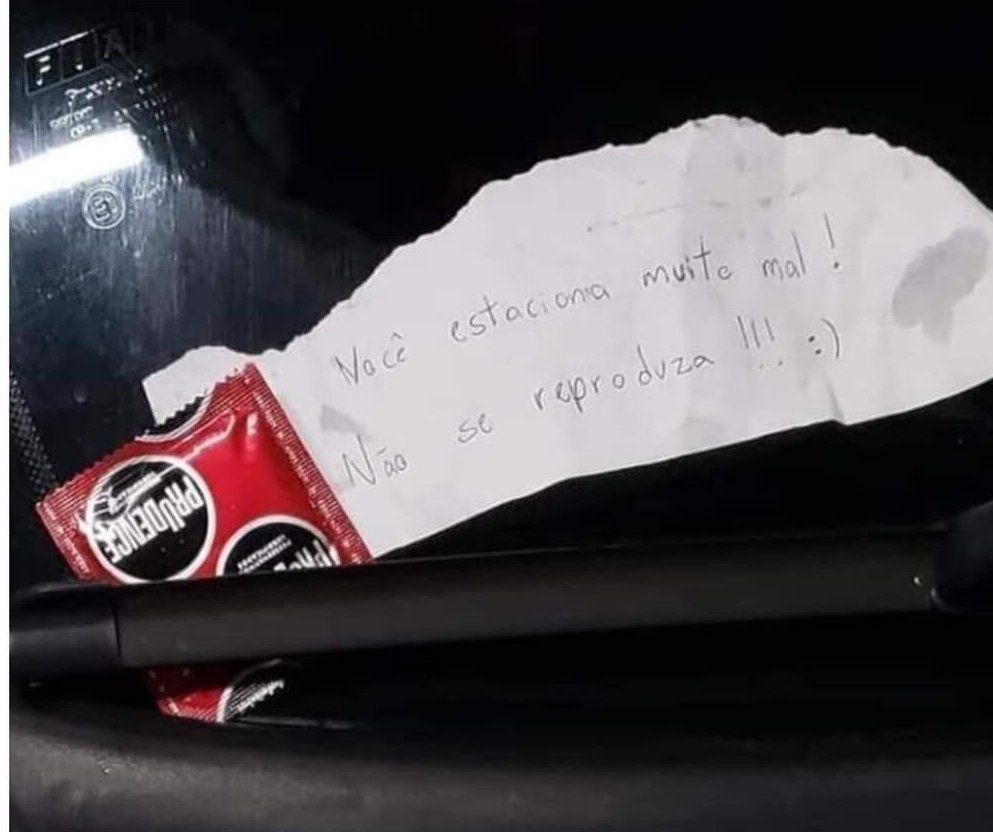 FIAT
Você estaciona muito mal!
Não se reproduza !!! :)
PRUDENCE